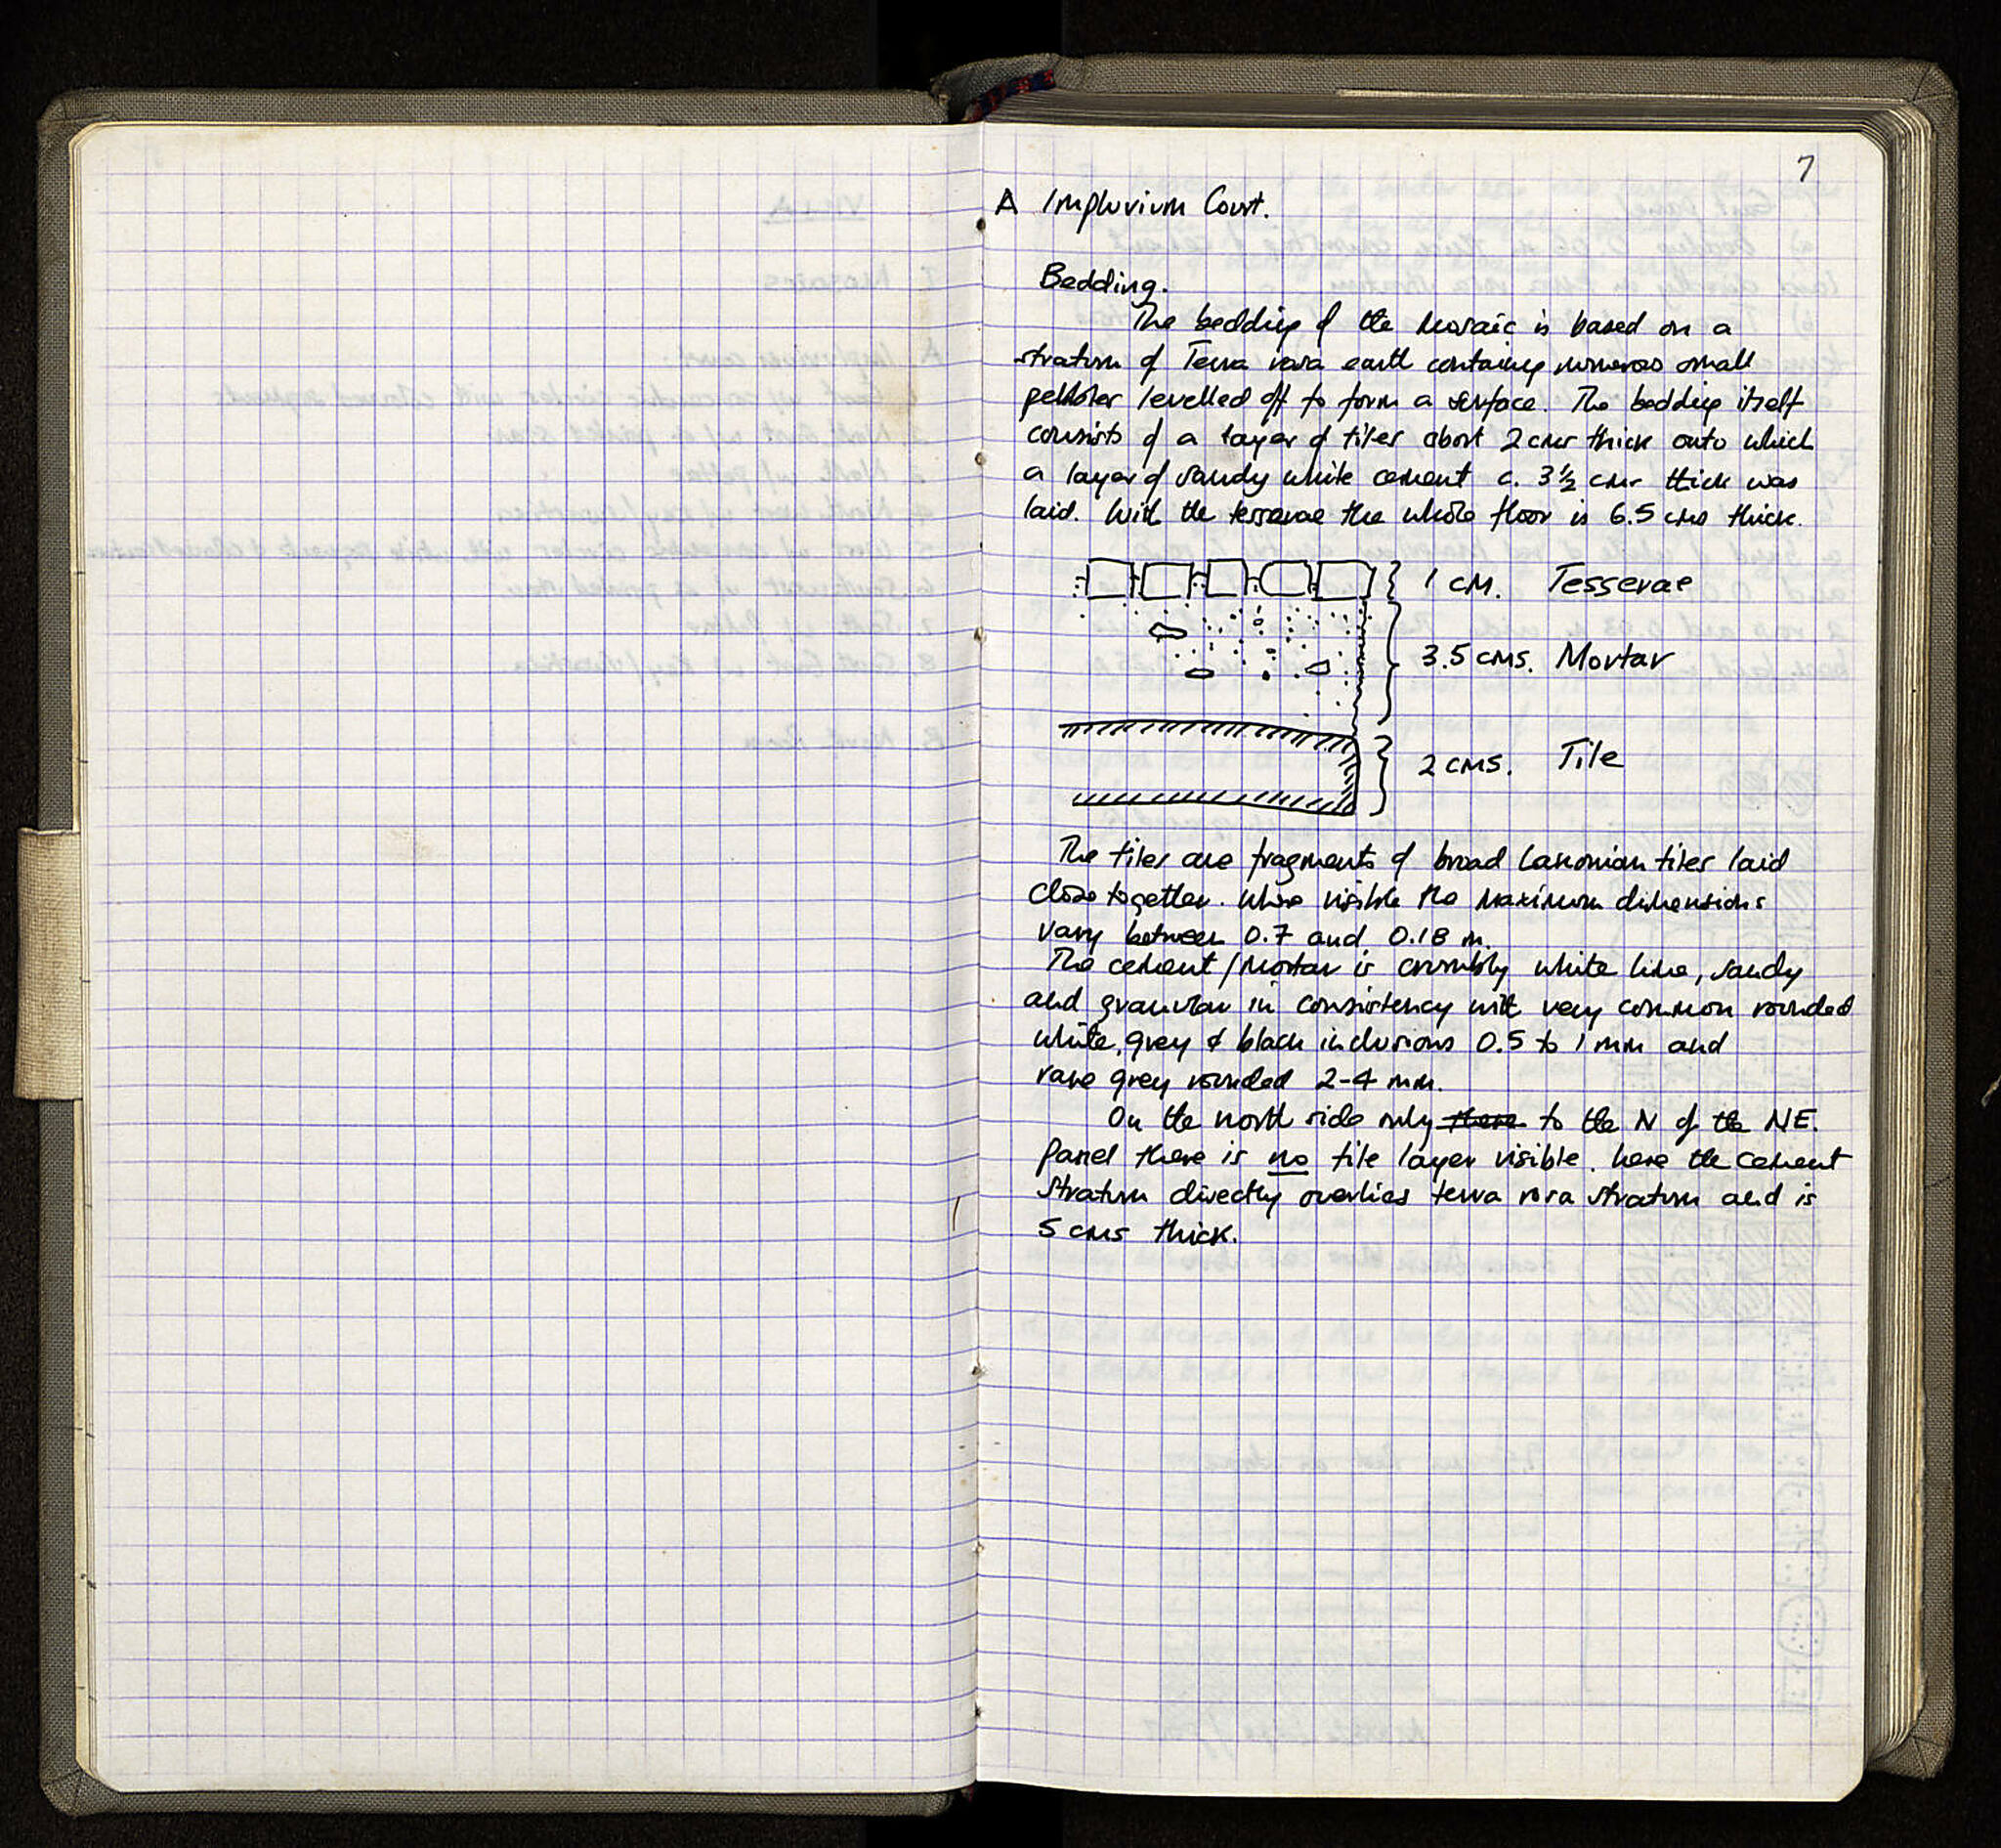 7
A Impluvium Court.
Bedding.
The bedding of the mosaic is based on a
stratum of Terra rosa earth containing numerous small
pebbles levelled off to form a surface. The bedding itself
consists of a layer of tiles about 2 cms thick onto which
a layer of sandy white cement c. 3½ cms thick was
laid. With the tesserae the whole floor is 6.5 cms thick.
1 CM. Tesserae
3.5 CMS. Mortar
2 CMS. Tile
The tiles are fragments of broad Lakonian tiles laid
close together. Where visible the maximum dimensions
vary between 0.7 and 0.18 m.
The cement/mortar is crumbly white lime, sandy
and granular in consistency with very common rounded
white, grey & black inclusions 0.5 to 1 mm and
rare grey rounded 2-4 mm.
On the north side only there to the N of the NE.
Panel there is no tile layer visible. here the cement
stratum directly overlies terra rosa stratum and is
5 cms thick.